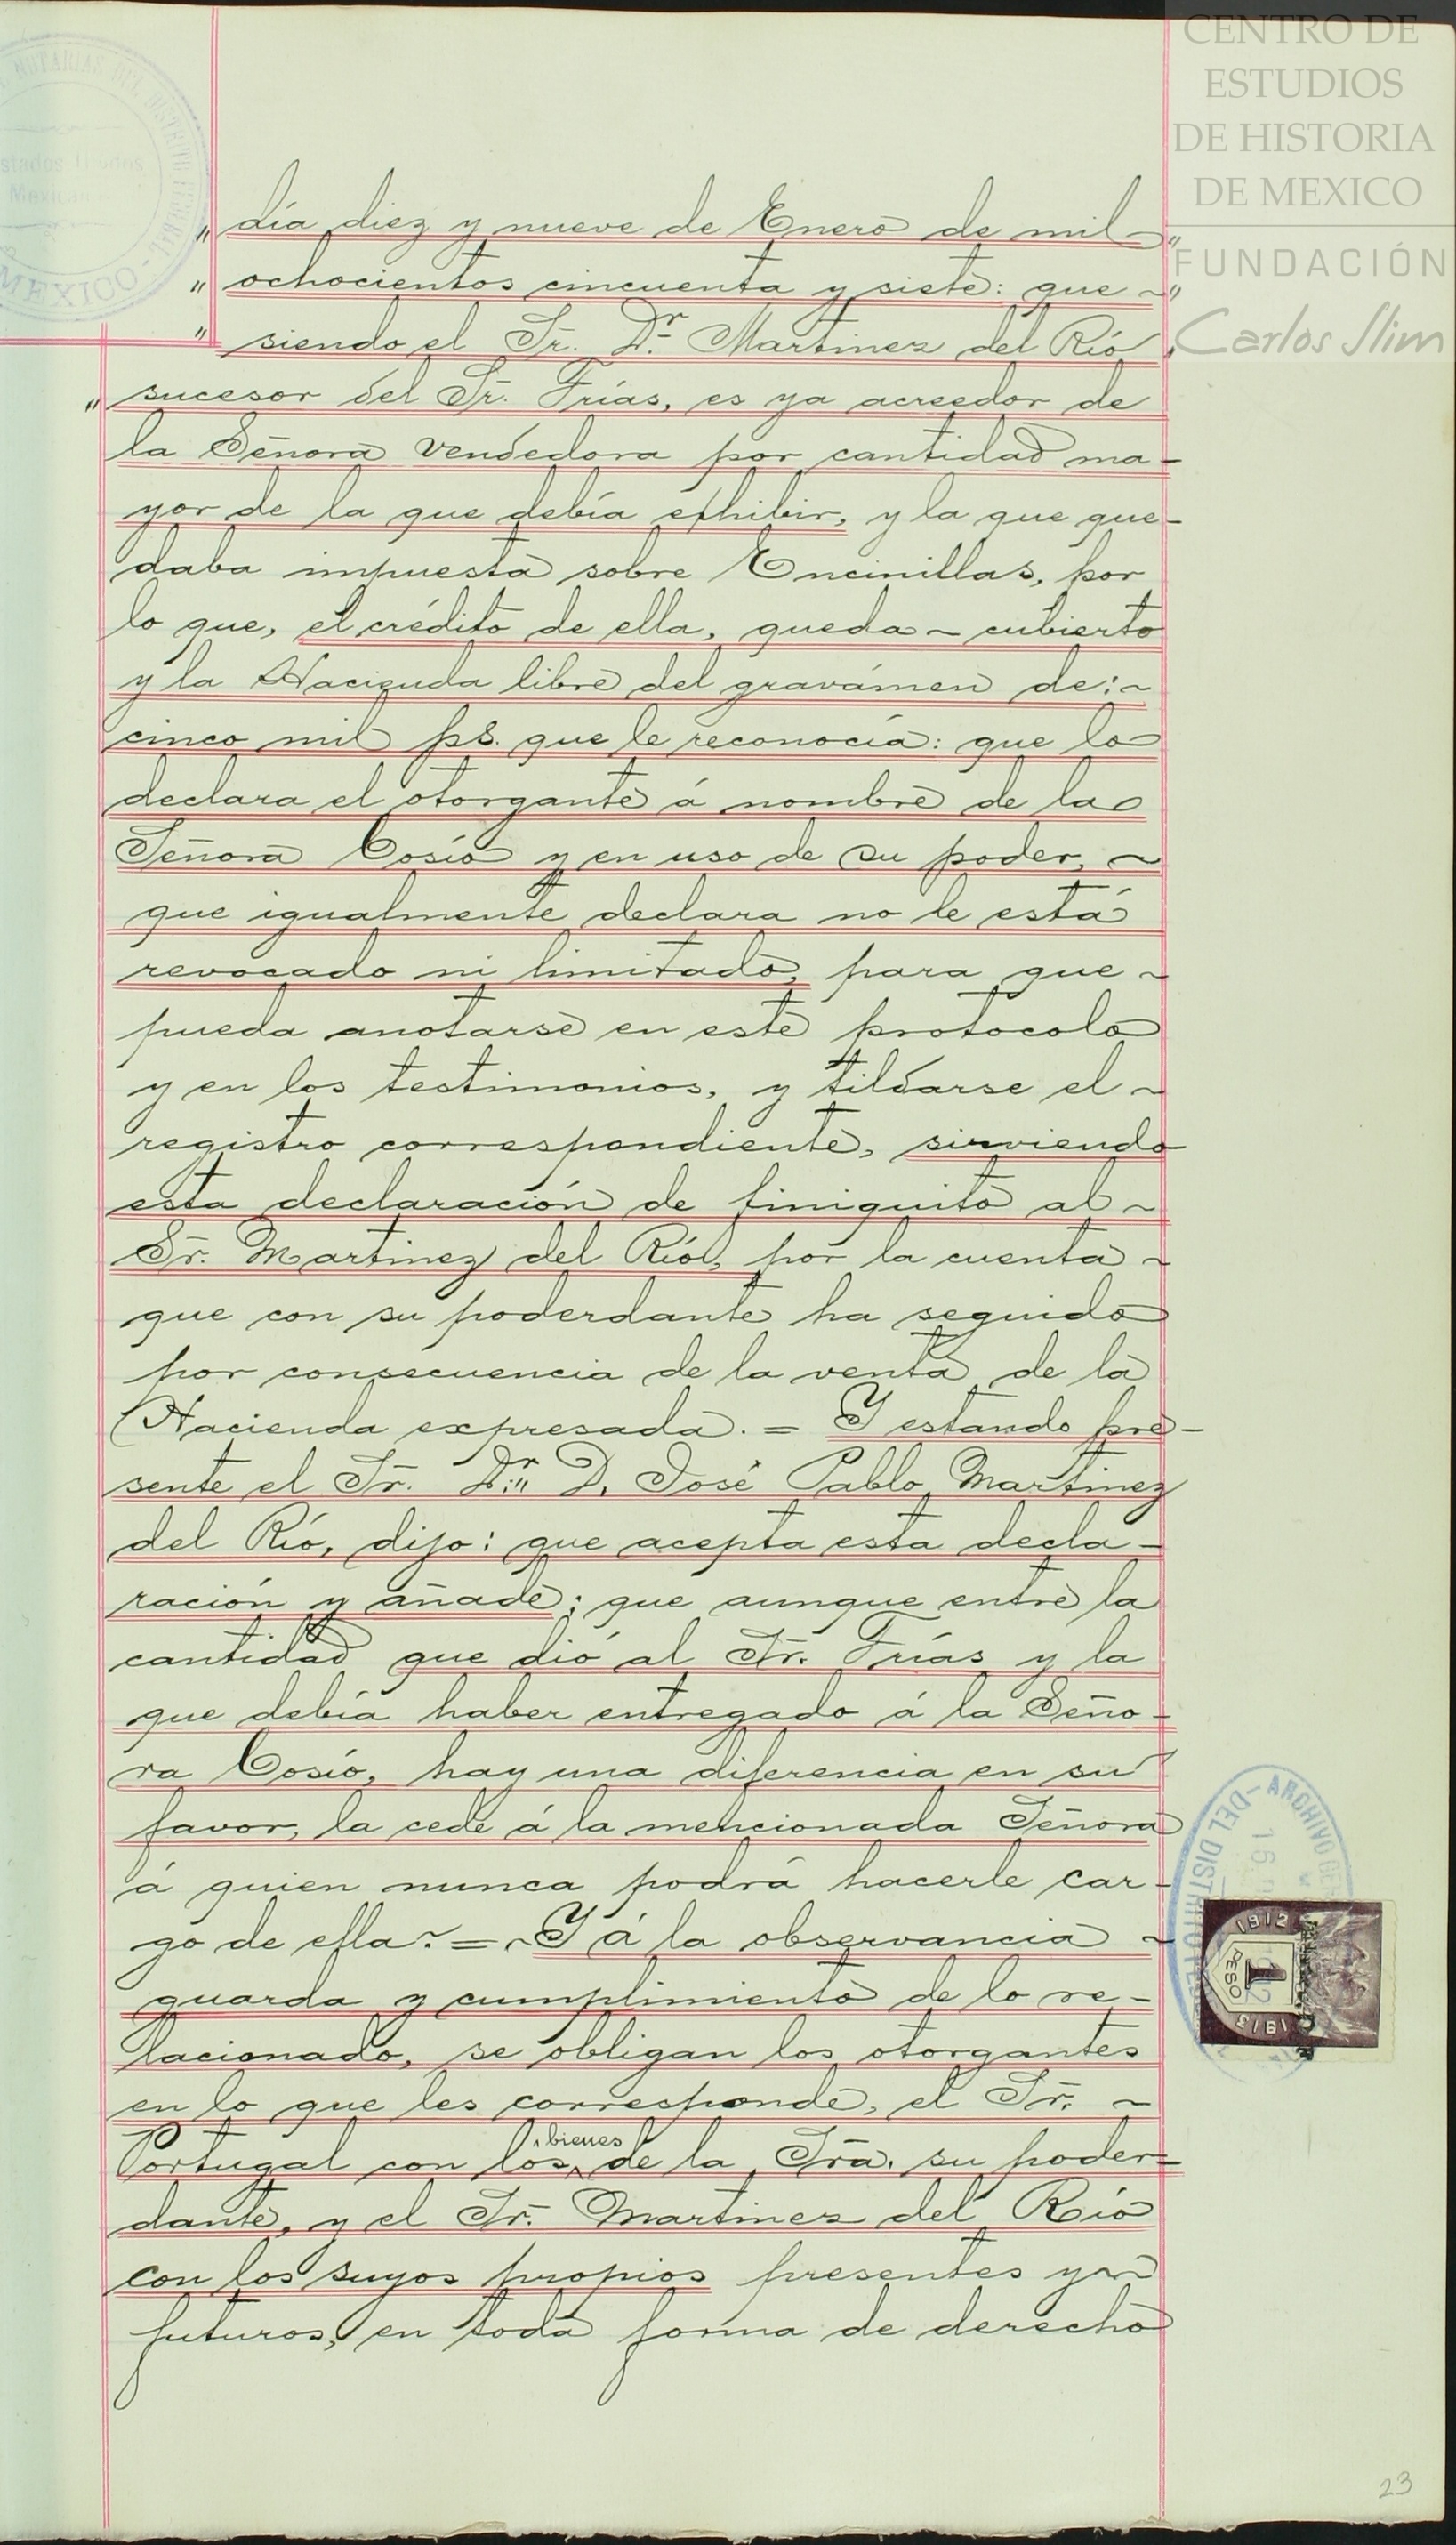 CENTRO DE
ESTUDIOS
DE HISTORIA
DE MEXICO
FUNDACIÓN
Carlos Slim
NOTARIAS DEL DISTRITO FEDERAL
Estados Unidos
Mexicanos
MEXICO
" día diez y nueve de Enero de mil "
" ochocientos cincuenta y siete: que ~ "
" siendo el Sr. Dr. Martinez del Río
" sucesor del Sr. Frías, es ya acreedor de
la Señora vendedora por cantidad ma-
yor de la que debía exhibir, y la que que-
daba impuesta sobre Encinillas, por
lo que, el crédito de ella, queda ~ cubierto
y la Hacienda libre del gravámen de: ~
cinco mil ps. que le reconocía: que lo
declara el otorgante á nombre de la
Señora Cosío y en uso de su poder, ~
que igualmente declara no le está
revocado ni limitado, para que ~
pueda anotarse en este protocolo
y en los testimonios, y tildarse el ~
registro correspondiente, sirviendo
esta declaración de finiquito al ~
Sr. Martinez del Río, por la cuenta ~
que con su poderdante ha seguido
por consecuencia de la venta de la
Hacienda expresada. = Y estando pre-
sente el Sr. Dr. D. José Pablo Martinez
del Río, dijo: que acepta esta decla-
ración y añade; que aunque entre la
cantidad que dió al Sr. Frías y la
que debía haber entregado á la Seño-
ra Cosío, hay una diferencia en su
favor, la cede á la mencionada Señora
á quien nunca podrá hacerle car-
go de ella. = ~ Y á la observancia ~
guarda y cumplimiento de lo re-
lacionado, se obligan los otorgantes
en lo que les corresponde, el Sr. ~
bienes
Portugal con los de la Sra. su poder=
dante, y el Sr. Martinez del Río
con los suyos propios presentes y ~
futuros, en toda forma de derecho
ARCHIVO GE
DEL DISTRITO FE
16
1912
1
PESO
1913
23